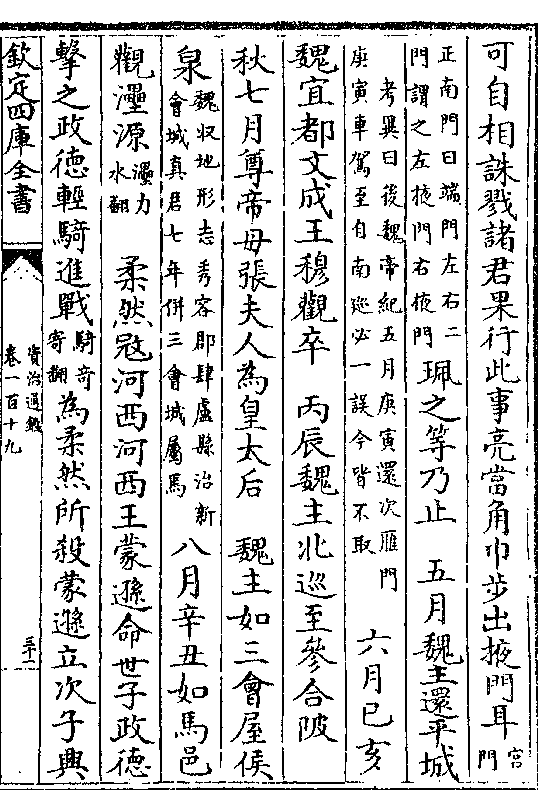 可自相誅戮諸君果行此事亮當角巾步出掖門耳宮
門
正南門曰端門左右二
門謂之左掖門右掖門
珮之等乃止　五月魏主還平城
考異曰後魏帝紀五月庚寅還次雁門
庚寅車駕至自南巡必一誤今皆不取
六月己亥
魏宜都文成王穆觀卒　丙辰魏主北巡至參合陂
秋七月尊帝母張夫人為皇太后　魏主如三會屋侯
泉
魏收地形志秀容郡肆盧縣治新
會城真君七年併三會城屬焉
八月辛丑如馬邑
觀灅源
灅力
水翻
柔然寇河西河西王蒙遜命世子政德
擊之政德輕騎進戰
騎奇
寄翻
為柔然所殺蒙遜立次子興
欽定四庫全書
資治通鑑
卷一百十九